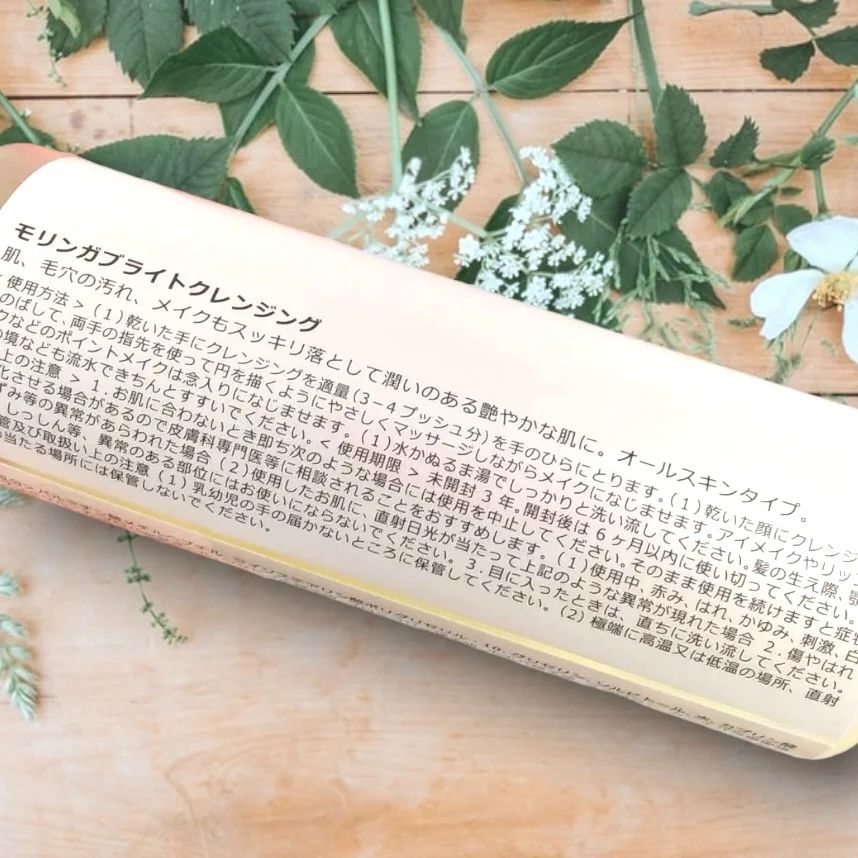 モリンガブライトクレンジング
肌、毛穴の汚れ、メイクもスッキリ落として潤いのある艶やかな肌に。オールスキンタイプ。
< 使用方法 > (1)乾いた手にクレンジングを適量(3−4プッシュ分)を手のひらにとります。(1)乾いた顔にクレンジ
のばして、両手の指先を使って円を描くようにやさしくマッサージしながらメイクになじませます。アイメイクやリッ
クなどのポイントメイクは念入りになじませます。(1)水かぬるま湯でしっかりと洗い流してください。髪の生え際、顎
の境なども流水できちんとすすいでください。< 使用期限 > 未開封3年。開封後は6ヶ月以内に使い切ってください。
上の注意 > 1.お肌に合わないとき即ち次のような場合には使用を中止してください。そのまま使用を続けますと症状
化させる場合があるので皮膚科専門医等に相談されることをおすすめします。(1)使用中、赤み、はれ、かゆみ、刺激、白
ずみ等の異常があらわれた場合 (2)使用したお肌に、直射日光が当たって上記のような異常が現れた場合 2.傷やはれ
しっしん等、異常のある部位にはお使いにならないでください。3.目に入ったときは、直ちに洗い流してください。
管及び取扱い上の注意 (1)乳幼児の手の届かないところに保管してください。(2)極端に高温又は低温の場所、直射
の当たる場所には保管しないでください。
ステアリン酸ポリグリセリル-10、グリセリン、ソルビトール、水、カプリン酸